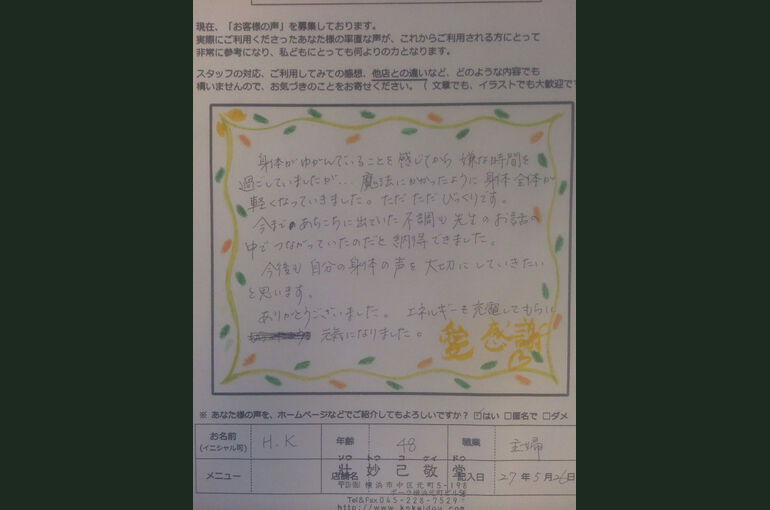 現在、「お客様の声」を募集しております。
実際にご利用くださったあなた様の率直な声が、これからご利用される方にとって
非常に参考になり、私どもにとっても何よりの力となります。
スタッフの対応、ご利用してみての感想、他店との違いなど、どのような内容でも
構いませんので、お気づきのことをお寄せください。（ 文章でも、イラストでも大歓迎で
身体がゆがんでいることを感じてから 嫌な時間を
過ごしていましたが… 魔法にかかったように 身体全体が
軽くなっていきました。ただ ただ びっくりです。
今まで あちこちに出ていた 不調も 先生の お話の
中で つながっていたのだと 納得できました。
今後も 自分の身体の声を 大切に していきたい
と思います。
ありがとうございました。 エネルギーを充電してもらい
元気になりました。
愛 感謝
※ あなた様の声を、ホームページなどでご紹介してもよろしいですか？ ☑はい □匿名で □ダメ
お名前 (イニシャル可) H.K 年齢 48 職業 主婦
メニュー 店舗名 記入日 27年5月26日
ソウ トウ コ ケイ ドウ
壮 妙 己 敬 堂
横浜市中区元町5-198
Tel&Fax 045-228-7529
http://www.kokeidou.com